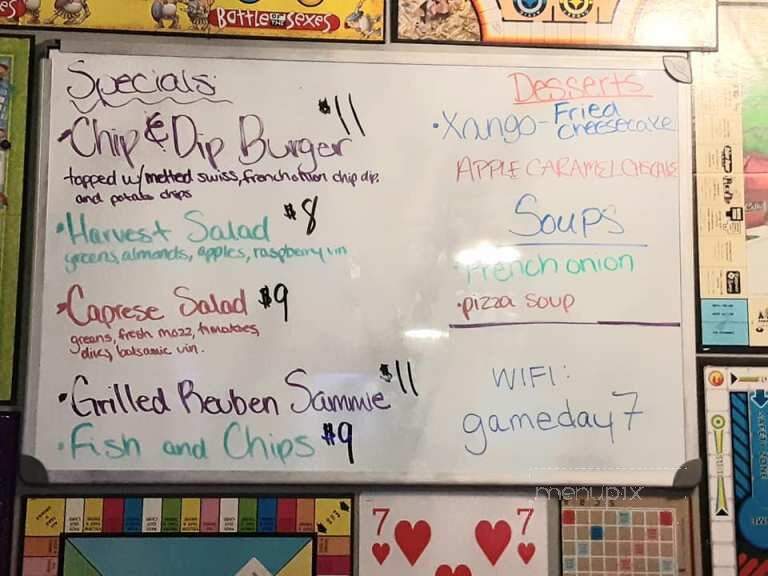 Battle OF THE Sexes
Specials:
•Chip & Dip Burger $11
topped w/ melted swiss, french onion chip dip,
and potato chips
•Harvest Salad $8
greens, almonds, apples, raspberry vin
•Caprese Salad $9
greens, fresh mozz, tomatoes,
olives, balsamic vin.
•Grilled Reuben Sammie $11
•Fish and Chips #9
Desserts
•Xango - Fried
cheesecake
APPLE CARAMEL CHSCAKE
Soups
French onion
•pizza soup
WIFI:
gameday7
menupix
7
7